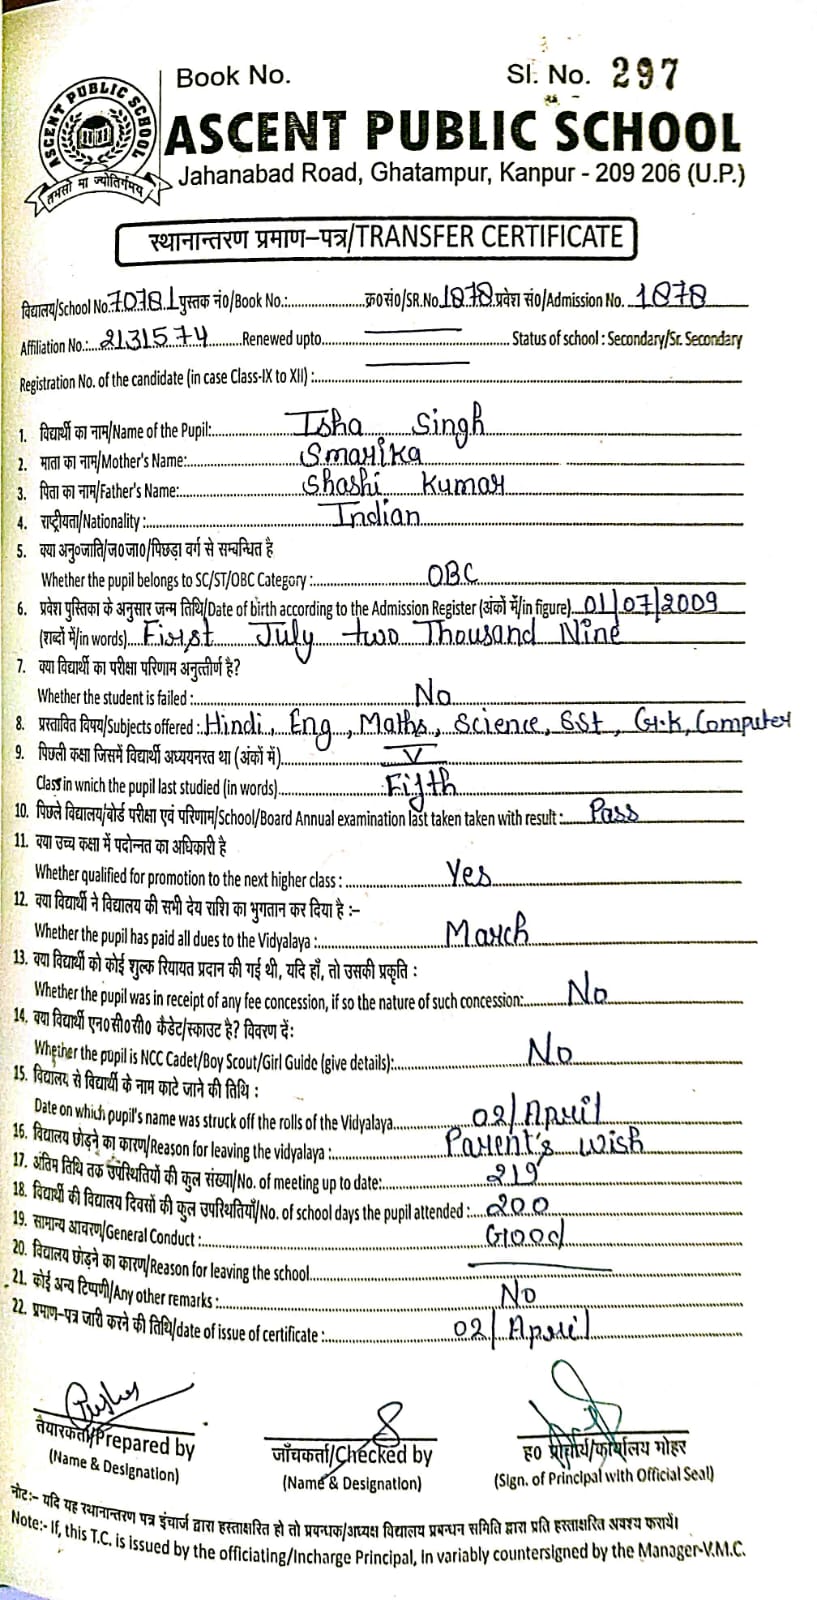 Book No. Sl. No. 297
ASCENT PUBLIC SCHOOL
तमसो मा ज्योतिर्गमय
ASCENT PUBLIC SCHOOL
Jahanabad Road, Ghatampur, Kanpur - 209 206 (U.P.)
स्थानान्तरण प्रमाण–पत्र/TRANSFER CERTIFICATE
विद्यालय/School No. 70781 पुस्तक नं0/Book No.:.......... क्र0सं0/SR.No. 1878 प्रवेश सं0/Admission No. 1878
Affiliation No.:... 2131574 ....Renewed upto.......... Status of school : Secondary/Sr. Secondary
Registration No. of the candidate (in case Class-IX to XII) :..........
1. विद्यार्थी का नाम/Name of the Pupil:.......... Isha Singh
2. माता का नाम/Mother's Name:.......... Smarika
3. पिता का नाम/Father's Name:.......... Shashi Kumar
4. राष्ट्रीयता/Nationality :.......... Indian
5. क्या अनु0जाति/ज0जा0/पिछड़ा वर्ग से सम्बन्धित है
Whether the pupil belongs to SC/ST/OBC Category :.......... OBC
6. प्रवेश पुस्तिका के अनुसार जन्म तिथि/Date of birth according to the Admission Register (अंकों में/in figure).. 01/07/2009
(शब्दों में/in words).... First July two Thousand Nine
7. क्या विद्यार्थी का परीक्षा परिणाम अनुत्तीर्ण है?
Whether the student is failed :.......... No
8. प्रस्तावित विषय/Subjects offered : Hindi, Eng, Maths, Science, SSt, G.K, Computer
9. पिछली कक्षा जिसमें विद्यार्थी अध्ययनरत था (अंकों में).......... V
Class in wnich the pupil last studied (in words).......... Fifth
10. पिछले विद्यालय/बोर्ड परीक्षा एवं परिणाम/School/Board Annual examination last taken taken with result :.... Pass
11. क्या उच्च कक्षा में पदोन्नत का अधिकारी है
Whether qualified for promotion to the next higher class : .......... Yes
12. क्या विद्यार्थी ने विद्यालय की सभी देय राशि का भुगतान कर दिया है :–
Whether the pupil has paid all dues to the Vidyalaya :.......... March
13. क्या विद्यार्थी को कोई शुल्क रियायत प्रदान की गई थी, यदि हाँ, तो उसकी प्रकृति :
Whether the pupil was in receipt of any fee concession, if so the nature of such concession:.......... No
14. क्या विद्यार्थी एन0सी0सी0 कैडेट/स्काउट है? विवरण दें:
Whether the pupil is NCC Cadet/Boy Scout/Girl Guide (give details):.......... No
15. विद्यालय से विद्यार्थी के नाम काटे जाने की तिथि :
Date on which pupil's name was struck off the rolls of the Vidyalaya.......... 02/April
16. विद्यालय छोड़ने का कारण/Reason for leaving the vidyalaya :.......... Parent's wish
17. अंतिम तिथि तक उपस्थितियों की कुल संख्या/No. of meeting up to date:.......... 219
18. विद्यार्थी की विद्यालय दिवसों की कुल उपरिथतियाँ/No. of school days the pupil attended : .. 200
19. सामान्य आचरण/General Conduct :.......... Good
20. विद्यालय छोड़ने का कारण/Reason for leaving the school..........
21. कोई अन्य टिप्पणी/Any other remarks :.......... No
22. प्रमाण–पत्र जारी करने की तिथि/date of issue of certificate :.......... 02/April
तैयारकर्ता/Prepared by जाँचकर्ता/Checked by ह0 प्राचार्य/कार्यालय मोहर
(Name & Designation) (Name & Designation) (Sign. of Principal with Official Seal)
नोट:– यदि यह स्थानान्तरण पत्र इंचार्ज द्वारा हस्ताक्षरित हो तो प्रबन्धक/अध्यक्ष विद्यालय प्रबन्धन समिति द्वारा प्रति हस्ताक्षरित अवश्य करायें।
Note:- If, this T.C. is issued by the officiating/Incharge Principal, In variably countersigned by the Manager-V.M.C.